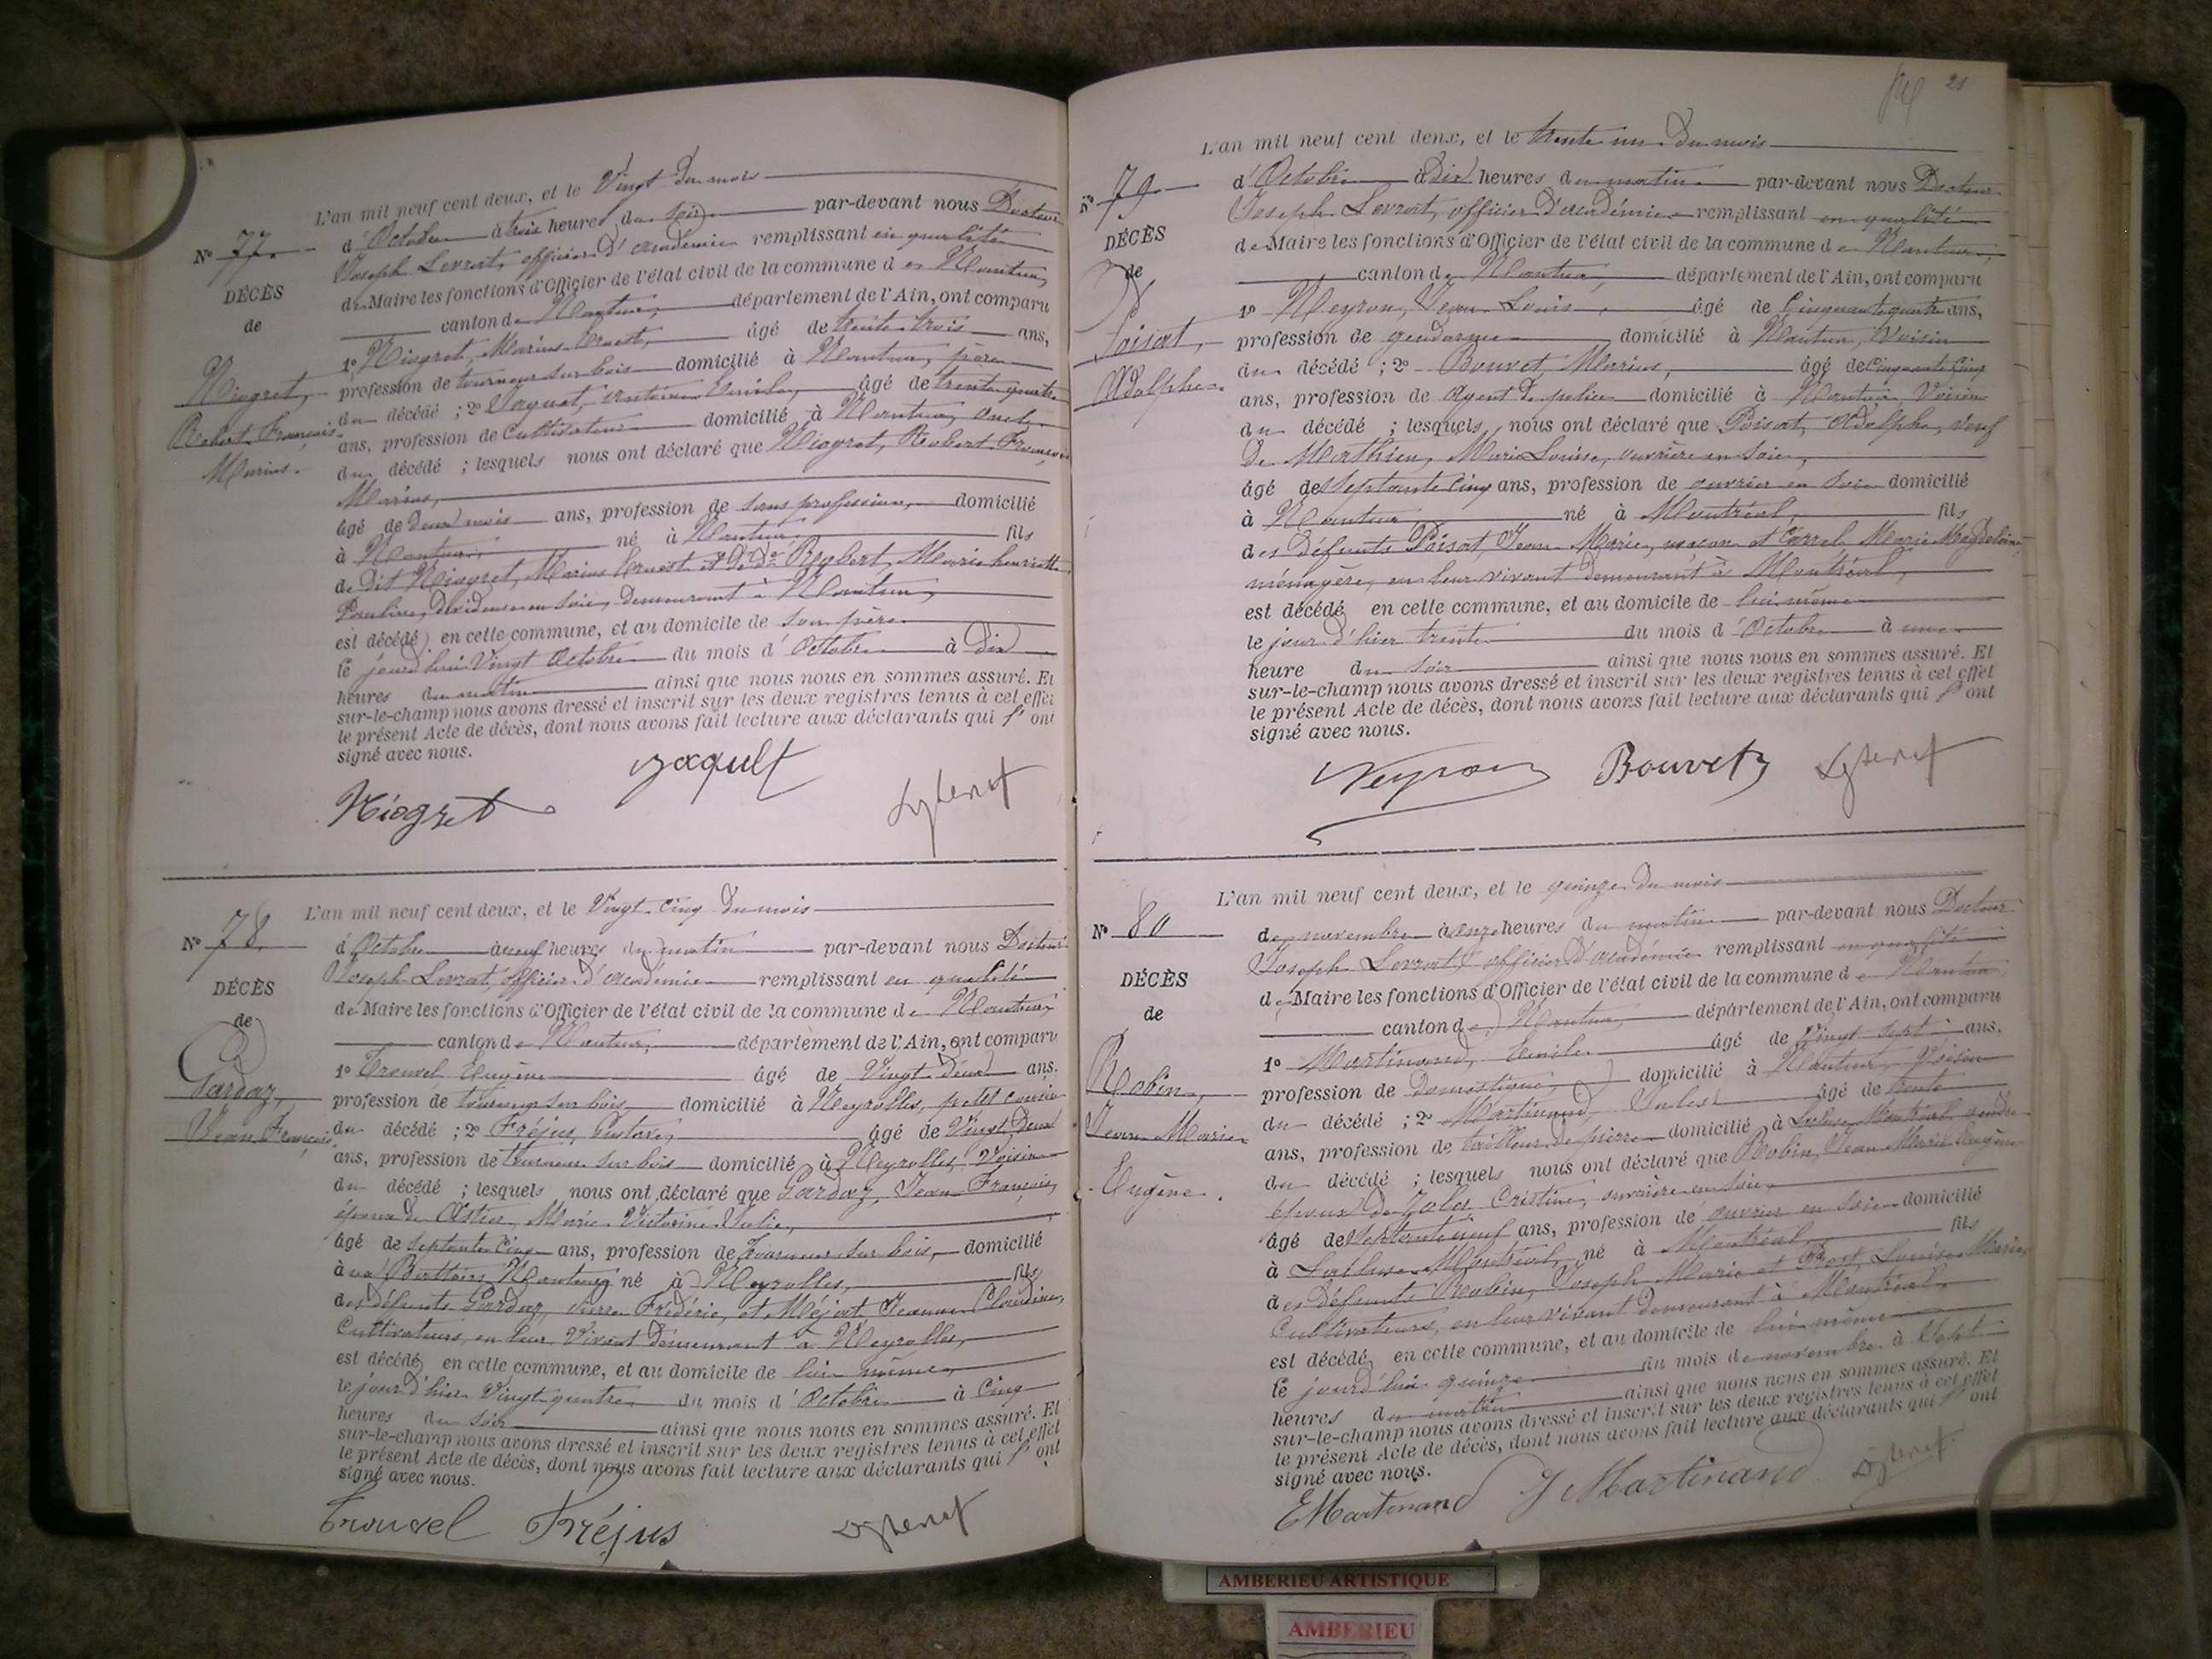 L'an mil neuf cent deux, et le Vingt du mois
N° 77.
d'Octobre à trois heures du soir par-devant nous Docteur
Joseph Levrat, officier d'académie remplissant en qualité
DÉCÈS
de Maire les fonctions d'Officier de l'état civil de la commune de Nantua,
de
canton de Nantua, département de l'Ain, ont comparu
1° Niogret, Marius Ernest, âgé de trente trois ans,
Niogret,
profession de tourneur sur bois domicilié à Nantua, père
du décédé ; 2° Jaquet, Antoine Emile, âgé de trente quatre
Robert François
ans, profession de Cultivateur domicilié à Nantua, oncle
Marius.
du décédé ; lesquels nous ont déclaré que Niogret, Robert François
Marius,
âgé de deux mois ans, profession de sans profession, domicilié
à Nantua né à Nantua, fils
de dit Niogret, Marius Ernest et de Marie henriette
Pauline, dévideuse en soie, demeurant à Nantua,
est décédé en cette commune, et au domicile de son père
le jourd'hui Vingt Octobre du mois d'Octobre à dix
heures du matin ainsi que nous nous en sommes assuré. Et
sur-le-champ nous avons dressé et inscrit sur les deux registres tenus à cet effet
le présent Acte de décès, dont nous avons fait lecture aux déclarants qui l'ont
signé avec nous.
Niogret

L'an mil neuf cent deux, et le Vingt-cinq du mois
N° 78.
d'Octobre à neuf heures du matin par-devant nous Docteur
Joseph Levrat, officier d'académie remplissant en qualité
DÉCÈS
de Maire les fonctions d'Officier de l'état civil de la commune de Nantua,
de
canton de Nantua, département de l'Ain, ont comparu
1° Trouvel Eugène âgé de Vingt-deux ans,
Gardaz,
profession de tourneur sur bois domicilié à Neyrolles, petit cousin
Jean François
du décédé ; 2° Fréjus, Gustave, âgé de Vingt-deux
ans, profession de tourneur sur bois domicilié à Neyrolles, Voisin
du décédé ; lesquels nous ont déclaré que Gardaz, Jean François,
époux de Marie Victorine Julie,
âgé de septante cinq ans, profession de tourneur sur bois, domicilié
Nantua, né à Neyrolles, fils
des défunts Gardaz, Pierre Frédéric, et Méjat, Jeanne Claudine,
Cultivateurs, en leur Vivant demeurant à Neyrolles,
est décédé en cette commune, et au domicile de lui même,
le jour d'hier Vingt-quatre du mois d'Octobre à Cinq
heures du soir ainsi que nous nous en sommes assuré. Et
sur-le-champ nous avons dressé et inscrit sur les deux registres tenus à cet effet
le présent Acte de décès, dont nous avons fait lecture aux déclarants qui l'ont
signé avec nous.
Trouvel Fréjus

21
L'an mil neuf cent deux, et le trente un du mois
N° 79
d'Octobre à dix heures du matin par-devant nous Docteur
Joseph Levrat, officier d'académie remplissant en qualité
DÉCÈS
de Maire les fonctions d'Officier de l'état civil de la commune de Nantua,
de
canton de Nantua, département de l'Ain, ont comparu
1° Neyron, Jean Louis, âgé de Cinquante quatre ans,
Poisat,
profession de gendarme domicilié à Nantua, Voisin
du décédé ; 2° Bouvet, Marius, âgé de cinquante cinq
Adolphe.
ans, profession de Agent de police domicilié à Nantua, Voisin
du décédé ; lesquels nous ont déclaré que Poisat, Adolphe, veuf
de Mathieu, Marie Louise, ouvrière en soie,
âgé de septante cinq ans, profession de ouvrier en soie domicilié
à Nantua né à Montréal, fils
des défunts Poisat, Jean Marie, maçon et Carrel Marie Magdeleine,
ménagère, en leur vivant demeurant à Montréal,
est décédé en cette commune, et au domicile de lui même
le jour d'hier trente du mois d'Octobre à une
heure du soir ainsi que nous nous en sommes assuré. Et
sur-le-champ nous avons dressé et inscrit sur les deux registres tenus à cet effet
le présent Acte de décès, dont nous avons fait lecture aux déclarants qui l'ont
signé avec nous.
Neyron Bouvet

L'an mil neuf cent deux, et le quinze du mois
N° 80
de novembre à onze heures du matin par-devant nous Docteur
Joseph Levrat, officier d'académie remplissant en qualité
DÉCÈS
de Maire les fonctions d'Officier de l'état civil de la commune de Nantua
de
canton de Nantua, département de l'Ain, ont comparu
1° Martinand, Emile âgé de Vingt sept ans,
Robin,
profession de Domestique, domicilié à Nantua, Voisin
du décédé ; 2° Martinand, Jules âgé de trente
Jean Marie
ans, profession de tailleur de pierre domicilié à Montréal, gendre
Eugène.
du décédé ; lesquels nous ont déclaré que Robin, Jean Marie Eugène
époux de Cristine, ouvrière en soie,
âgé de septante neuf ans, profession de ouvrier en soie domicilié
à Montréal, né à Montréal, fils
des défunts Robin, Joseph Marie et Louise Marie,
Cultivateurs, en leur vivant demeurant à Montréal,
est décédé en cette commune, et au domicile de lui même
le jourd'hui quinze du mois de novembre à Sept
heures du matin ainsi que nous nous en sommes assuré. Et
sur-le-champ nous avons dressé et inscrit sur les deux registres tenus à cet effet
le présent Acte de décès, dont nous avons fait lecture aux déclarants qui l'ont
signé avec nous.
E Martinand J Martinand
AMBERIEU ARTISTIQUE
AMBERIEU